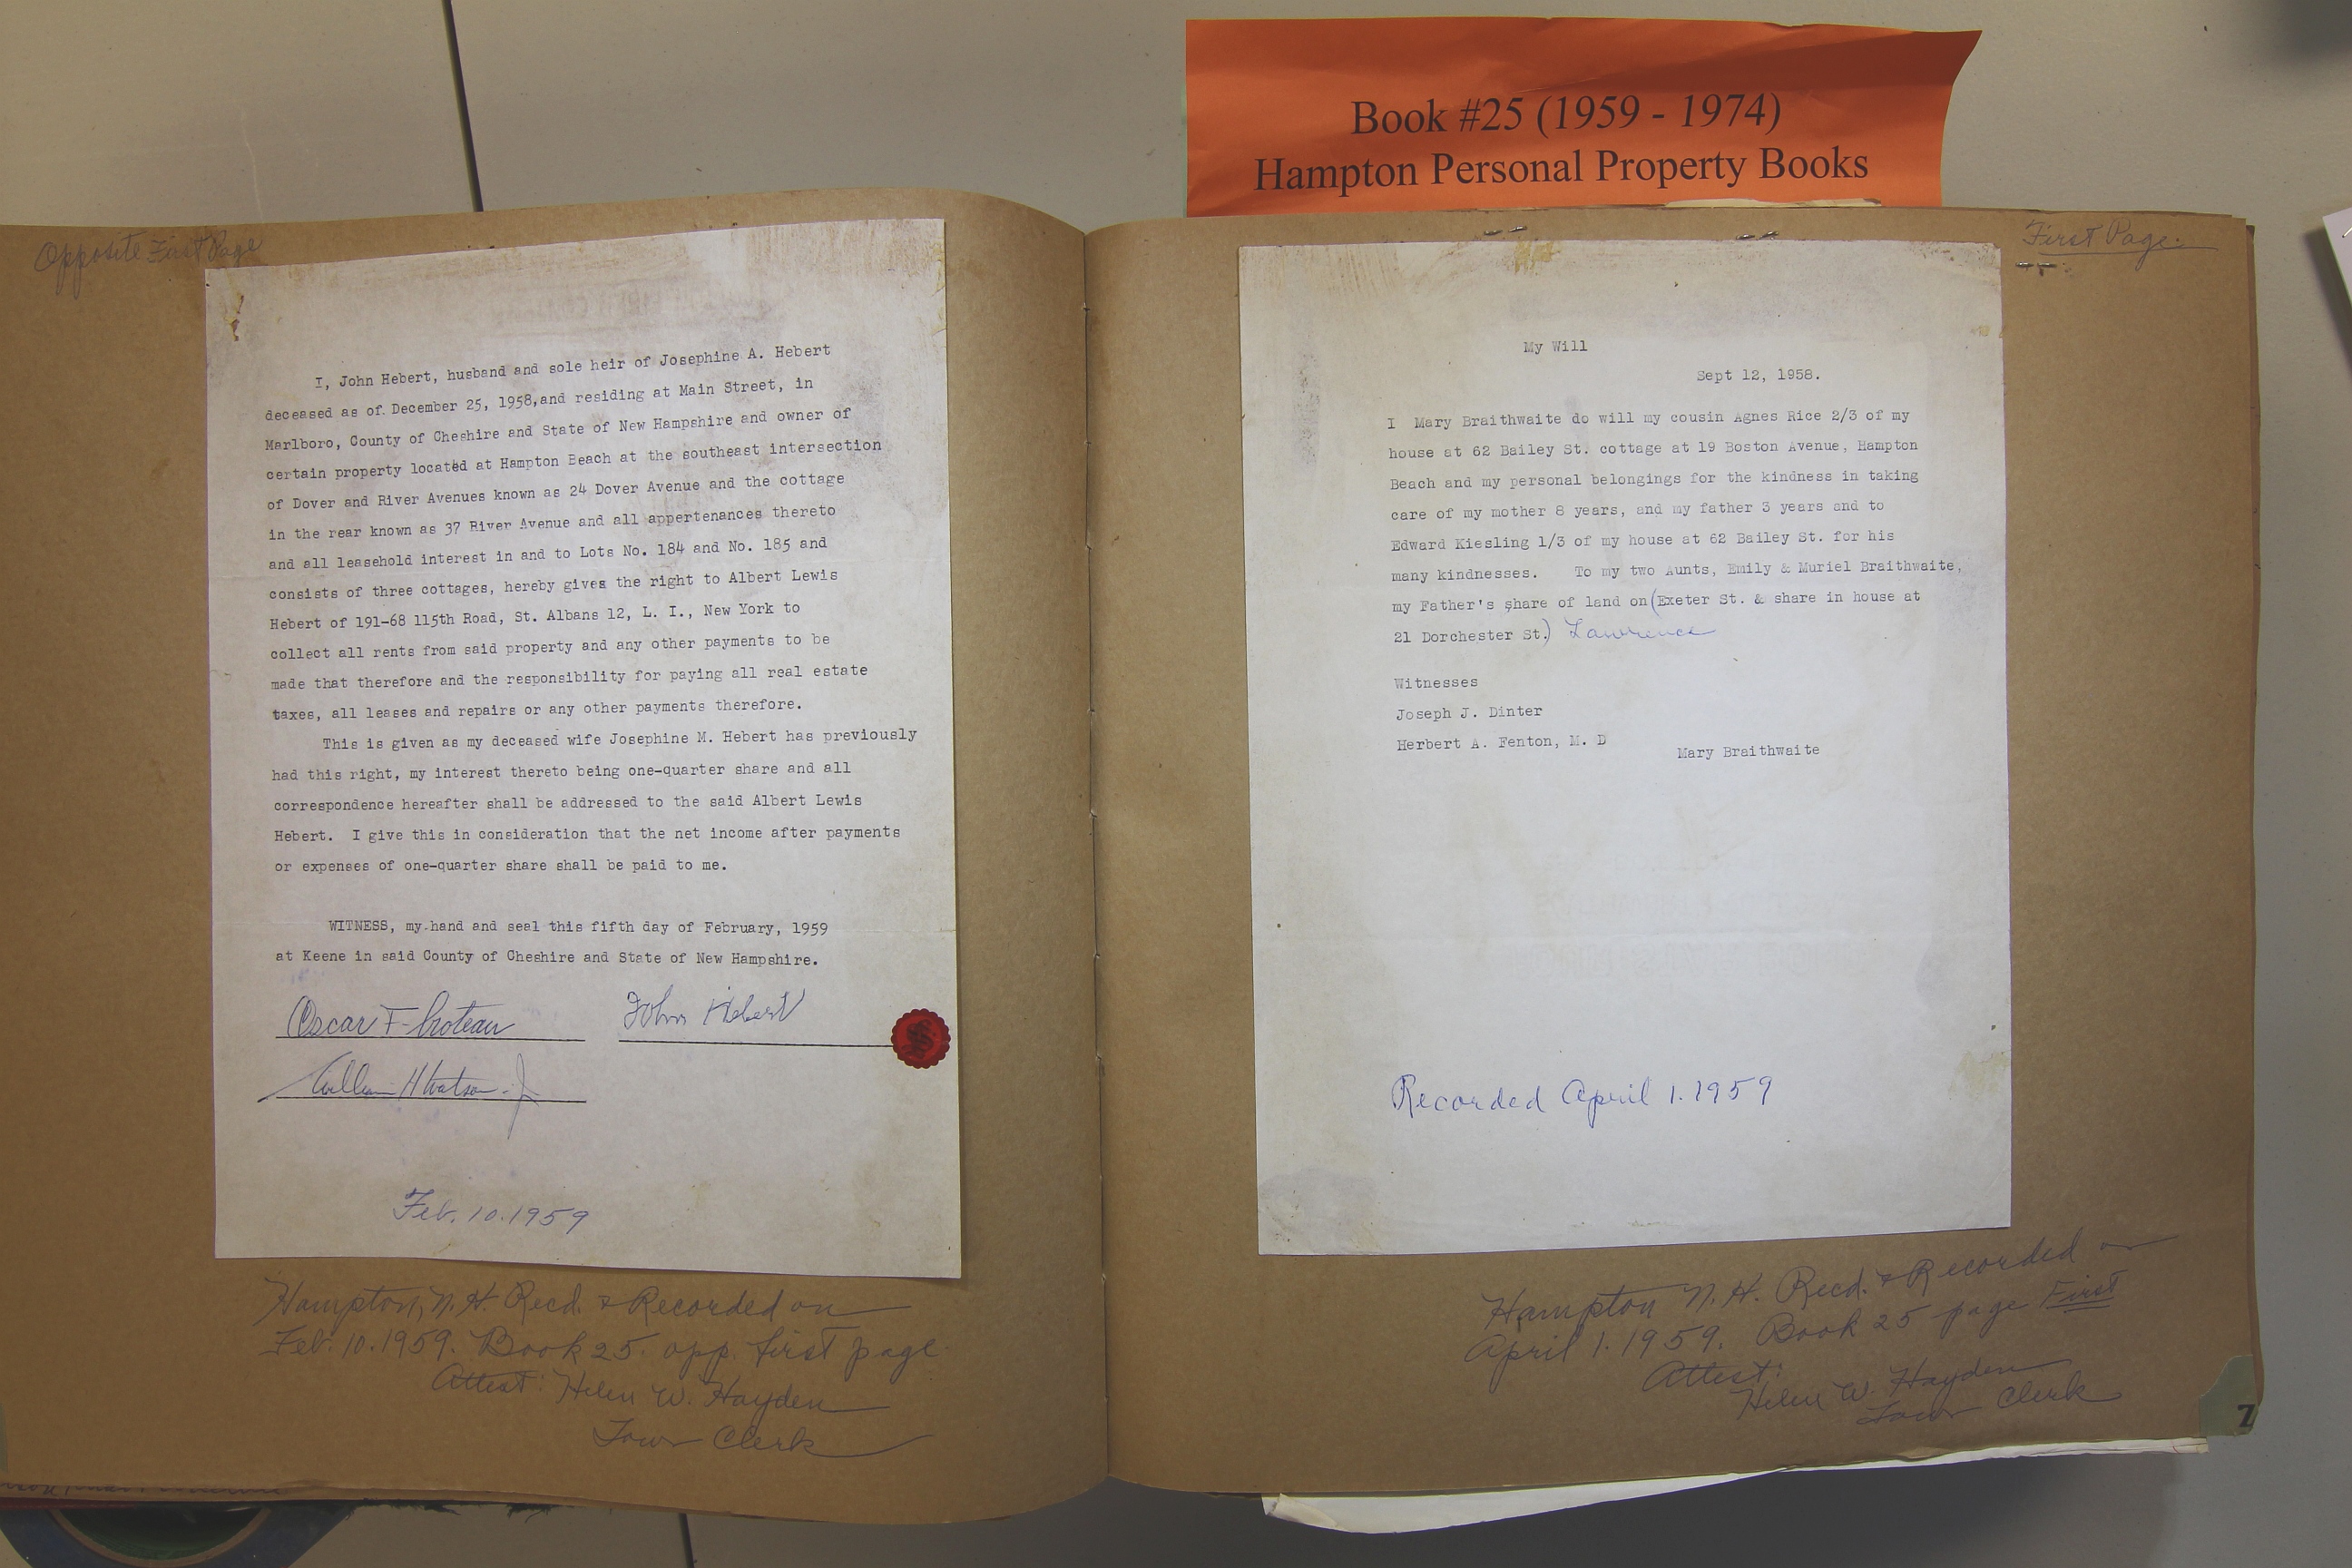 Book #25 (1959 - 1974)
Hampton Personal Property Books
Opposite First Page
I, John Hebert, husband and sole heir of Josephine A. Hebert
deceased as of December 25, 1958,and residing at Main Street, in
Marlboro, County of Cheshire and State of New Hampshire and owner of
certain property located at Hampton Beach at the southeast intersection
of Dover and River Avenues known as 24 Dover Avenue and the cottage
in the rear known as 37 River Avenue and all appertenances thereto
and all leasehold interest in and to Lots No. 184 and No. 185 and
consists of three cottages, hereby gives the right to Albert Lewis
Hebert of 191-68 115th Road, St. Albans 12, L. I., New York to
collect all rents from said property and any other payments to be
made that therefore and the responsibility for paying all real estate
taxes, all leases and repairs or any other payments therefore.
This is given as my deceased wife Josephine M. Hebert has previously
had this right, my interest thereto being one-quarter share and all
correspondence hereafter shall be addressed to the said Albert Lewis
Hebert. I give this in consideration that the net income after payments
or expenses of one-quarter share shall be paid to me.
WITNESS, my hand and seal this fifth day of February, 1959
at Keene in said County of Cheshire and State of New Hampshire.
Oscar F. Croteau John Hebert
William H Watson Jr
Feb. 10. 1959
Hampton, N. H. Recd. & Recorded on
Feb. 10. 1959. Book 25. opp. first page
Attest: Helen W. Hayden
Town Clerk
First Page.
My Will
Sept 12, 1958.
I Mary Braithwaite do will my cousin Agnes Rice 2/3 of my
house at 62 Bailey St. cottage at 19 Boston Avenue, Hampton
Beach and my personal belongings for the kindness in taking
care of my mother 8 years, and my father 3 years and to
Edward Kiesling 1/3 of my house at 62 Bailey St. for his
many kindnesses. To my two Aunts, Emily & Muriel Braithwaite,
my Father's share of land on (Exeter St. & share in house at
21 Dorchester St.) Lawrence
Witnesses
Joseph J. Dinter
Herbert A. Fenton, M. D
Mary Braithwaite
Recorded April 1. 1959
Hampton N. H. Recd. & Recorded on
April 1. 1959. Book 25 page First
Attest:
Helen W. Hayden
Town Clerk
Z